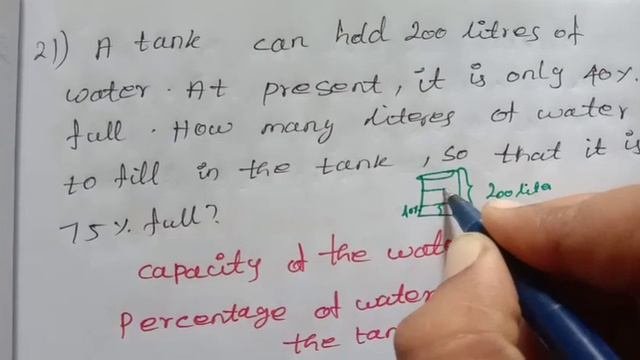 21) A tank can hold 200 litres of
water. At present, it is only 40%
full. How many literes of water
to fill in the tank, so that it is
75% full?
200 lite
capacity of the wat
Percentage of water
the tan